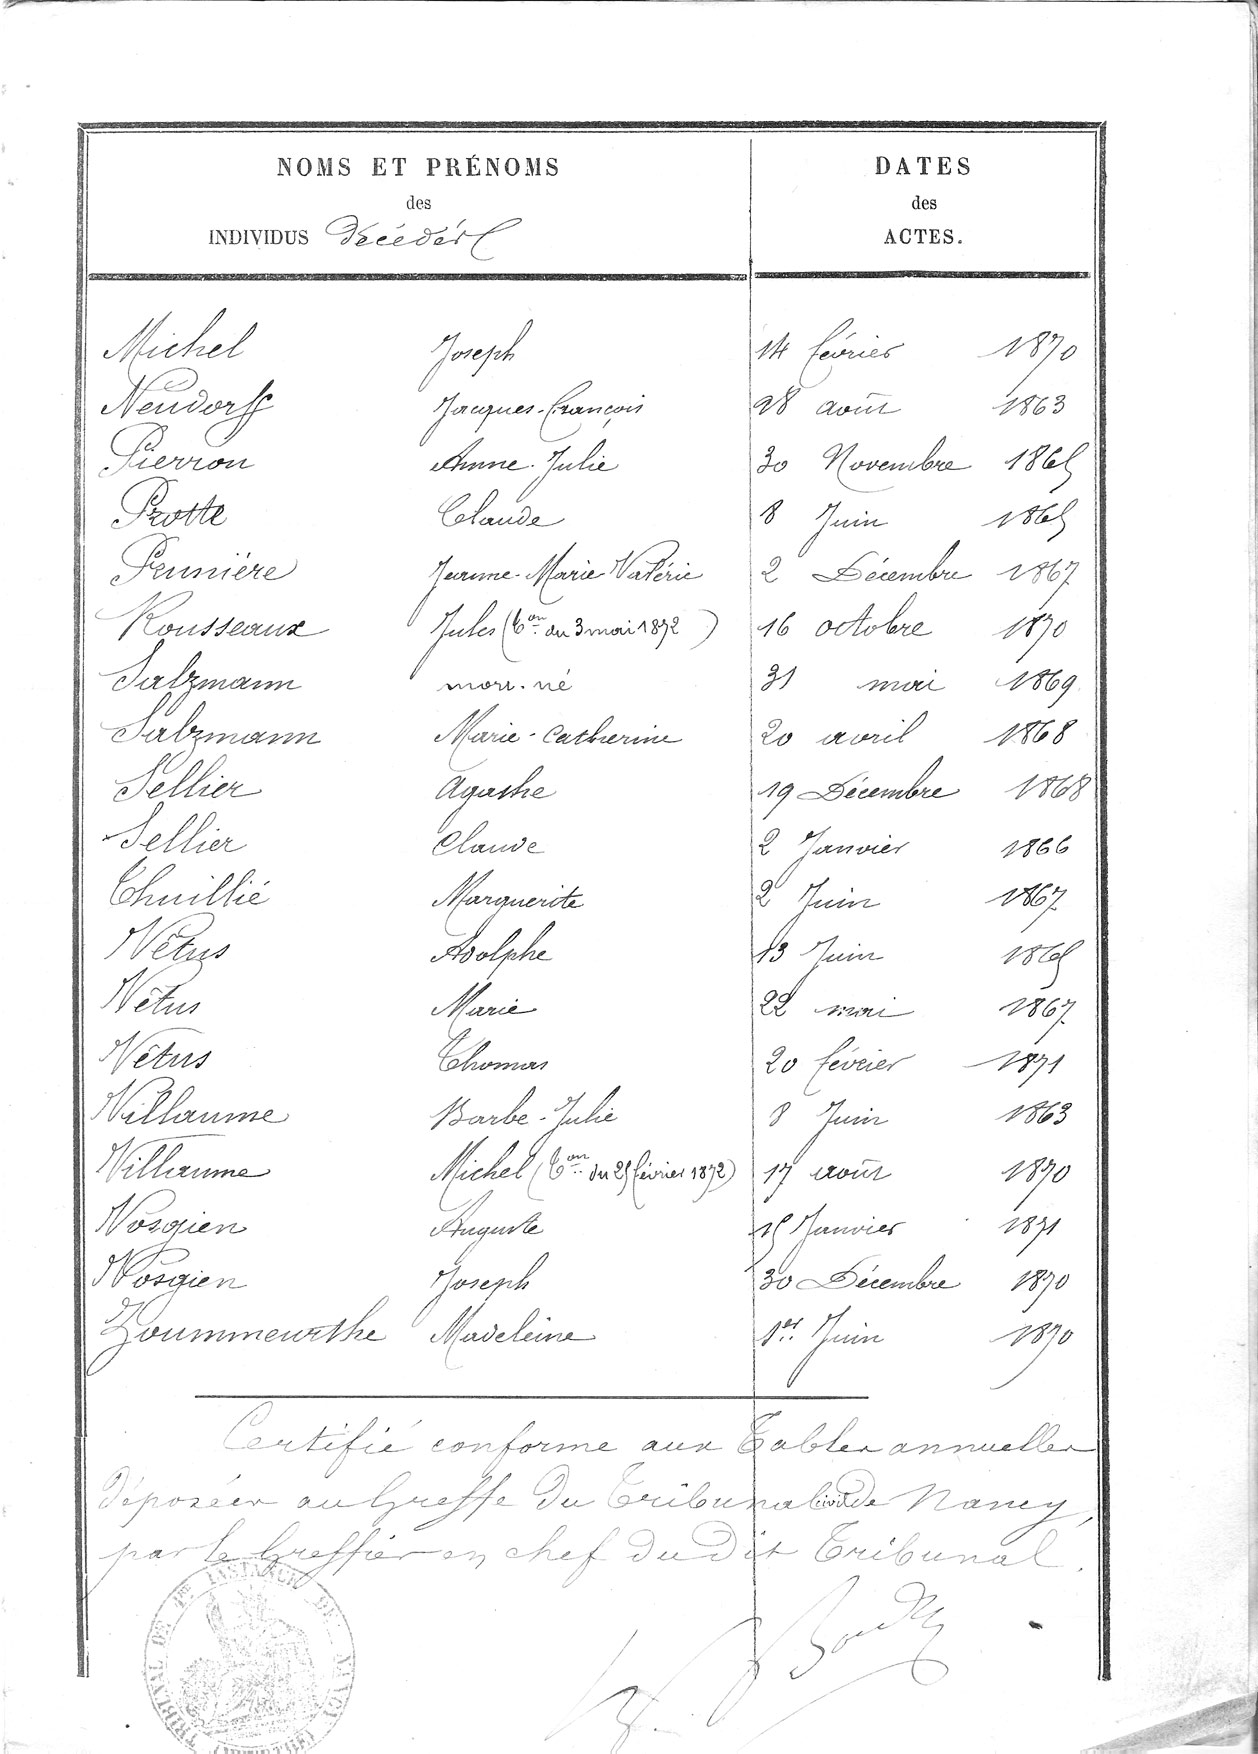 NOMS ET PRÉNOMS
des
INDIVIDUS Décédés
DATES
des
ACTES.
Michel Joseph 14 février 1870
Neudorff Jacques-François 28 août 1863
Pierron Anne-Julie 30 Novembre 1865
Protte Claude 8 Juin 1865
Peunière Jeanne-Marie-Valérie 2 Décembre 1867
Rousseaux Jules (Con du 3 mai 1872) 16 octobre 1870
Salzmann mort-né 31 mai 1869
Salzmann Marie-Catherine 20 avril 1868
Sellier Agathe 19 Décembre 1868
Sellier Claude 2 Janvier 1866
Thuillié Marguerite 2 Juin 1867
Vêtus Adolphe 13 Juin 1865
Vêtus Marie 22 mai 1867
Vêtus Thomas 20 février 1871
Villaume Barbe-Julie 8 Juin 1863
Villaume Michel (Con du 25 février 1872) 17 août 1870
Vosgien Auguste 15 Janvier 1871
Vosgien Joseph 30 Décembre 1870
Zoummeurthe Madeleine 1er Juin 1870
Certifié conforme aux Tables annuelles
déposées au Greffe du Tribunal civil de Nancy,
par le Greffier en chef du dit Tribunal.
TRIBUNAL DE 1RE INSTANCE DE NANCY